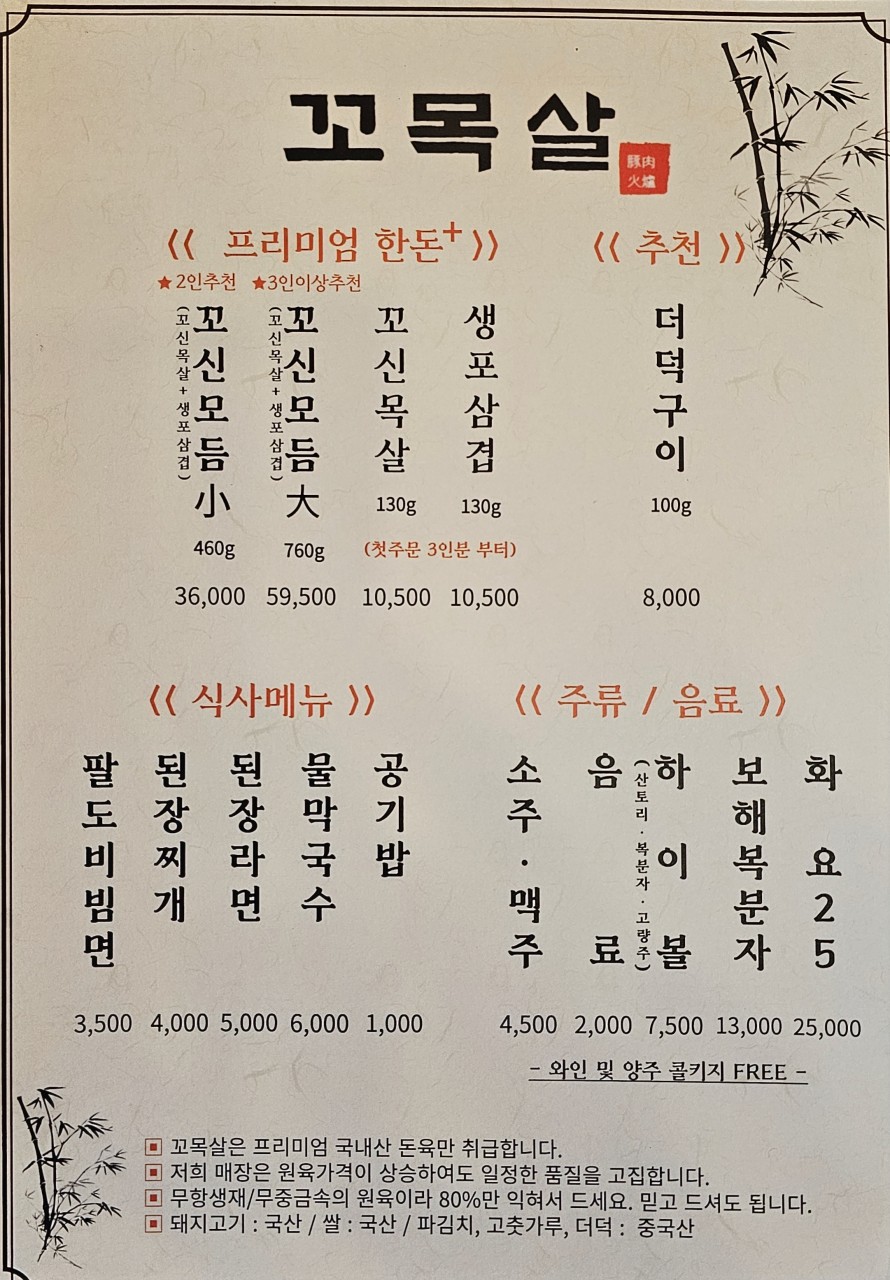 꼬목살
豚肉
火爐
《 프리미엄 한돈+ 》
★2인추천 ★3인이상추천
꼬신모듬小
(꼬신목살+생포삼겹)
460g
36,000
꼬신모듬大
(꼬신목살+생포삼겹)
760g
59,500
꼬신목살
130g
10,500
생포삼겹
130g
10,500
(첫주문 3인분 부터)
《 추천 》
더덕구이
100g
8,000
《 식사메뉴 》
팔도비빔면
3,500
된장찌개
4,000
된장라면
5,000
물막국수
6,000
공기밥
1,000
《 주류 / 음료 》
소주·맥주
4,500
음료
2,000
하이볼
(산토리·복분자·고량주)
7,500
보해복분자
13,000
화요25
25,000
- 와인 및 양주 콜키지 FREE -
꼬목살은 프리미엄 국내산 돈육만 취급합니다.
저희 매장은 원육가격이 상승하여도 일정한 품질을 고집합니다.
무항생재/무중금속의 원육이라 80%만 익혀서 드세요. 믿고 드셔도 됩니다.
돼지고기 : 국산 / 쌀 : 국산 / 파김치, 고춧가루, 더덕 : 중국산